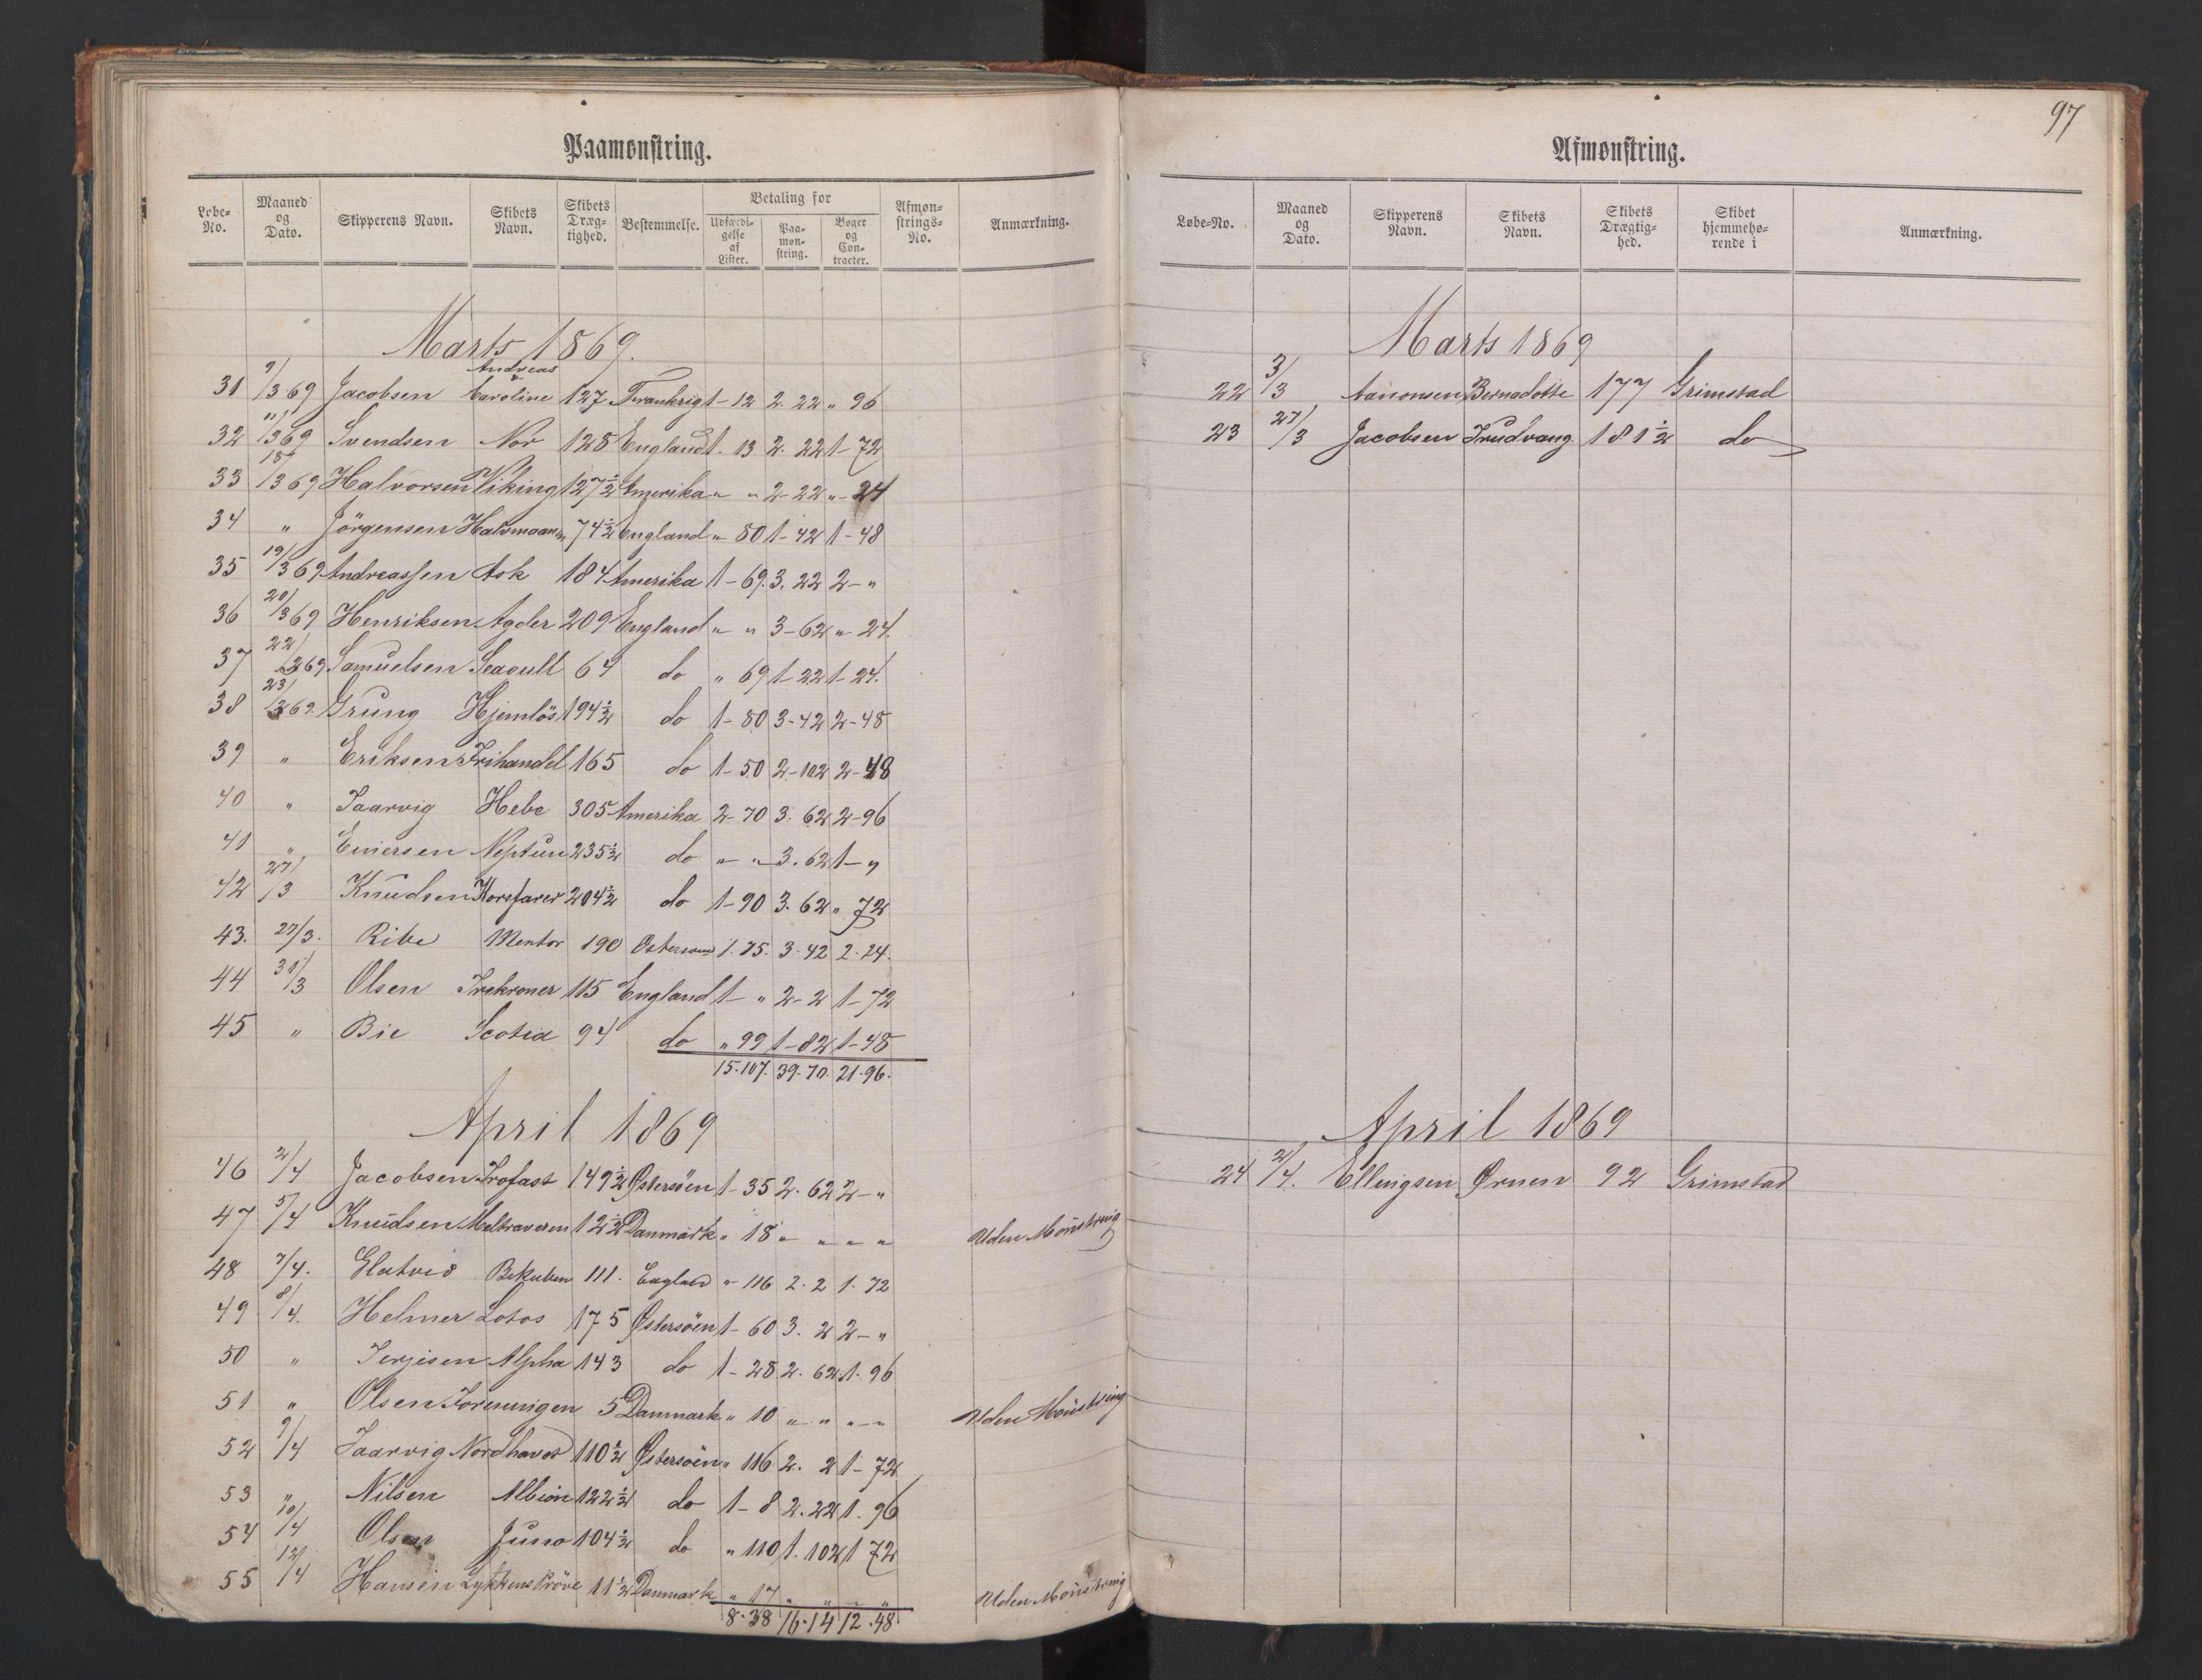 97
Paamønstring.
Løbe-No. Maaned og Dato. Skipperens Navn. Skibets Navn. Skibets Dræg-tighed. Bestemmelse. Betaling for Udfærdi-gelse af Lister. Paa-mon-string. Bøger og Con-tracter. Afmøn-strings-No. Anmærkning.
Marts 1869.
31 9/3 69 Jacobsen Andreas Caroline 127 Frankrig 1-12 2. 22 " 96
32 11/3 69 Svendsen Nor 128 England 1. 13 2. 22 1-72
33 15/3 69 Halvorsen Viking 127½ Amerika " " 2-22 "-24
34 " Jörgensen Halvmaanen 74½ England " 80 1-42 1-48
35 19/3 69 Andreassen Ask 184 Amerika 1-69. 3. 22 2-"
36 20/3 69 Henriksen Agder 209 England " " 3-62 " 24.
37 22/3 69 Samuelsen Seagull 64 do " 69 1-22 1-24.
38 23/3 69. Grung Hjemlös 194½ do 1-80 3-42 2-48
39 " Eriksen Frihandel 165 do 1-50 2-102 2-48
40 " Jaarvig Hebe 305 Amerika 2-70 3. 62 2-96
41 " Neptun 235½ do " " 3. 62 1-"
42 27/3 Knudsen Korsfarer 204½ do 1-90 3. 62 " 72
43. 27/3. Ribe Mentor 190 1. 75. 3. 42 2. 24.
44 31/3 Olsen Trekroner 115 England 1-" 2-2 1-72
45 " Bie Scotia 94 do " 99 1-82 1-48
15.107. 39.70. 21.96.
April 1869
46 2/4 Jacobsen Trofast 149½ Østersöen 1-35 2. 62 2-"
47 5/4 Knudsen 12½ Danmark " 18 " " " " Uden Mönstring
48 7/4. Bikuben 111. England " 116 2. 2 1. 72
49 8/4. Helmer Lotos 175 Østersöen 1-60 3. 2 2-"
50 " Terjesen Alpha 143 do 1-28 2. 62 1. 96
51 " Olsen Foreningen 5 Danmark " 10 " " " " Uden Mönstring
52 9/4 Jaarvig Nordhavet 110½ Østersöen " 116 2. 2 1-72
53 " Nilsen Albion 122½ do 1-8 2. 22 1. 96
54 10/4 Olsen Juno 104½ do " 110 1. 102 1 72
55 12/4 Hansen Lykkens Pröve 11½ Danmark " 17 " " " " Uden Mönstring
8.38 16.14 12.48
Afmønstring.
Løbe-No. Maaned og Dato. Skipperens Navn. Skibets Navn. Skibets Drægtig-hed. Skibet hjemmehø-rende i Anmærkning.
Marts 1869
22 3/3 Aanonsen Bernadotte 177 Grimstad
23 27/3 Jacobsen Trudvang 181½ do
April 1869
24 2/4. Ellingsen Ørnen 92 Grimstad